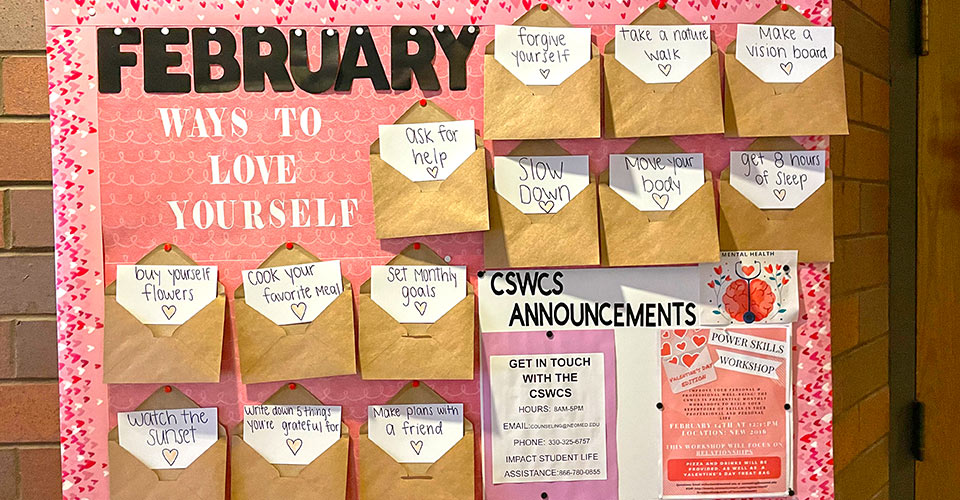 FEBRUARY
WAYS TO
LOVE
YOURSELF
ask for
help
forgive
yourself
take a nature
walk
Make a
vision board
Slow
Down
Move your
body
get 8 hours
of sleep
buy yourself
flowers
cook your
favorite meal
Set Monthly
goals
Watch the
sunset
Write down 5 things
you're grateful for
Make plans with
a friend
CSWCS
ANNOUNCEMENTS
MENTAL HEALTH
GET IN TOUCH
WITH THE
CSWCS
HOURS: 8AM-5PM
EMAIL:COUNSELING@NEOMED.EDU
PHONE: 330-325-6757
IMPACT STUDENT LIFE
ASSISTANCE:866-780-0855
POWER SKILLS
WORKSHOP
VALENTINE'S DAY
EDITION
IMPROVE YOUR PERSONAL &
PROFESSIONAL WELL-BEING!
FEBRUARY 14TH AT 12:15PM
LOCATION: NEW 2016
THIS WORKSHOP WILL FOCUS ON
RELATIONSHIPS
PIZZA AND DRINKS WILL BE
PROVIDED, AS WELL AS A
VALENTINE'S DAY TREAT BAG